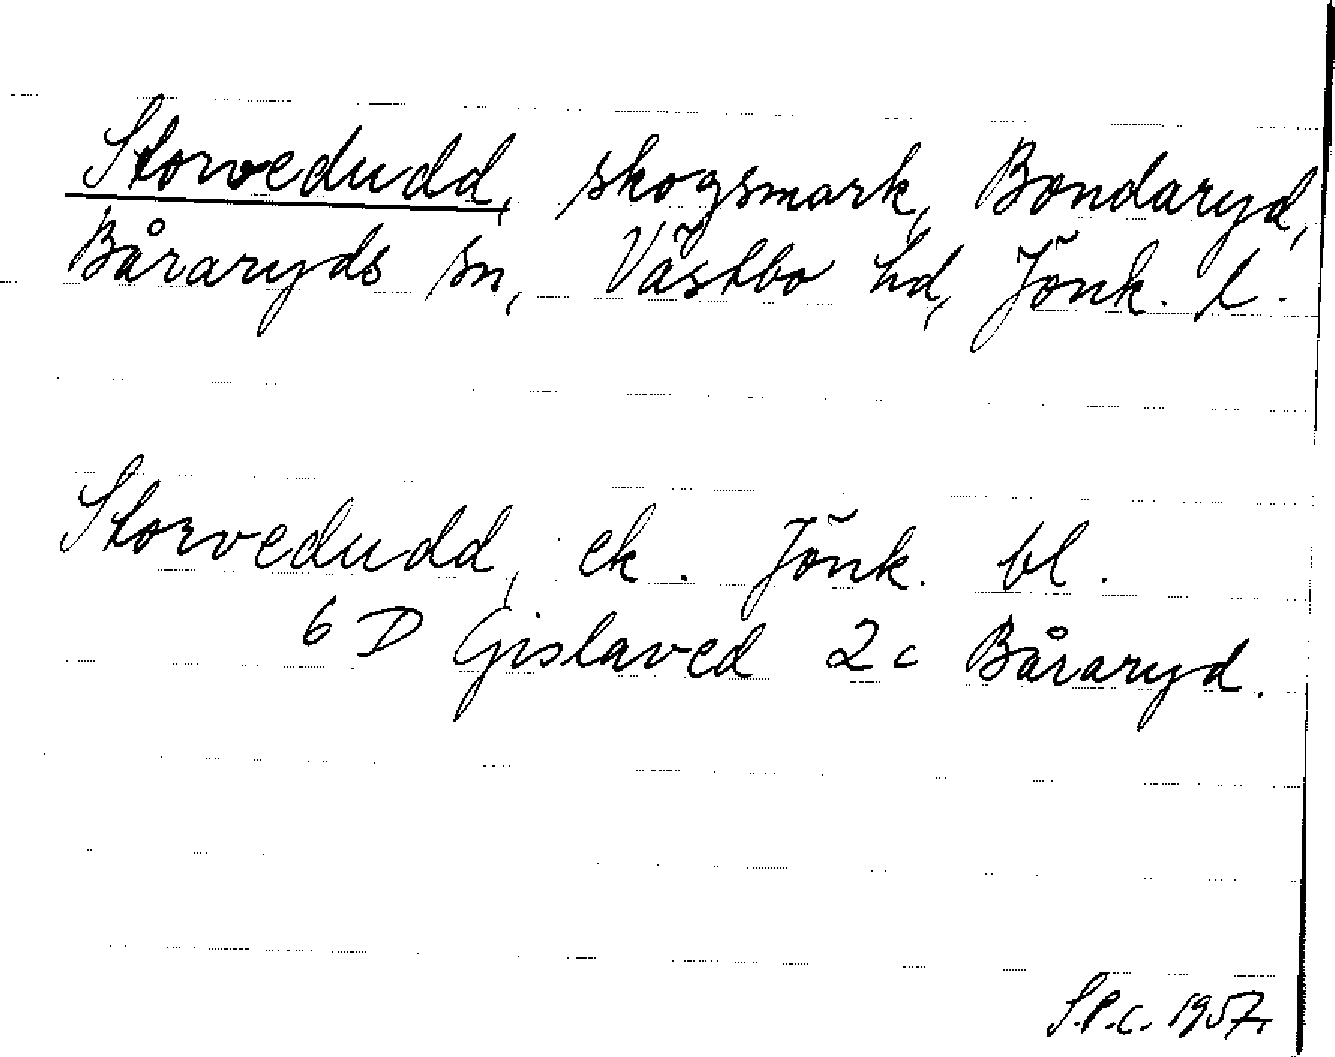 Storvedudd, skogsmark, Bondaryd,
Båraryds sn, Västbo hd, Jönk. l.
Storvedudd, ek. Jönk. bl.
6 D Gislaved 2c Båraryd.
S.P.C. 1957.